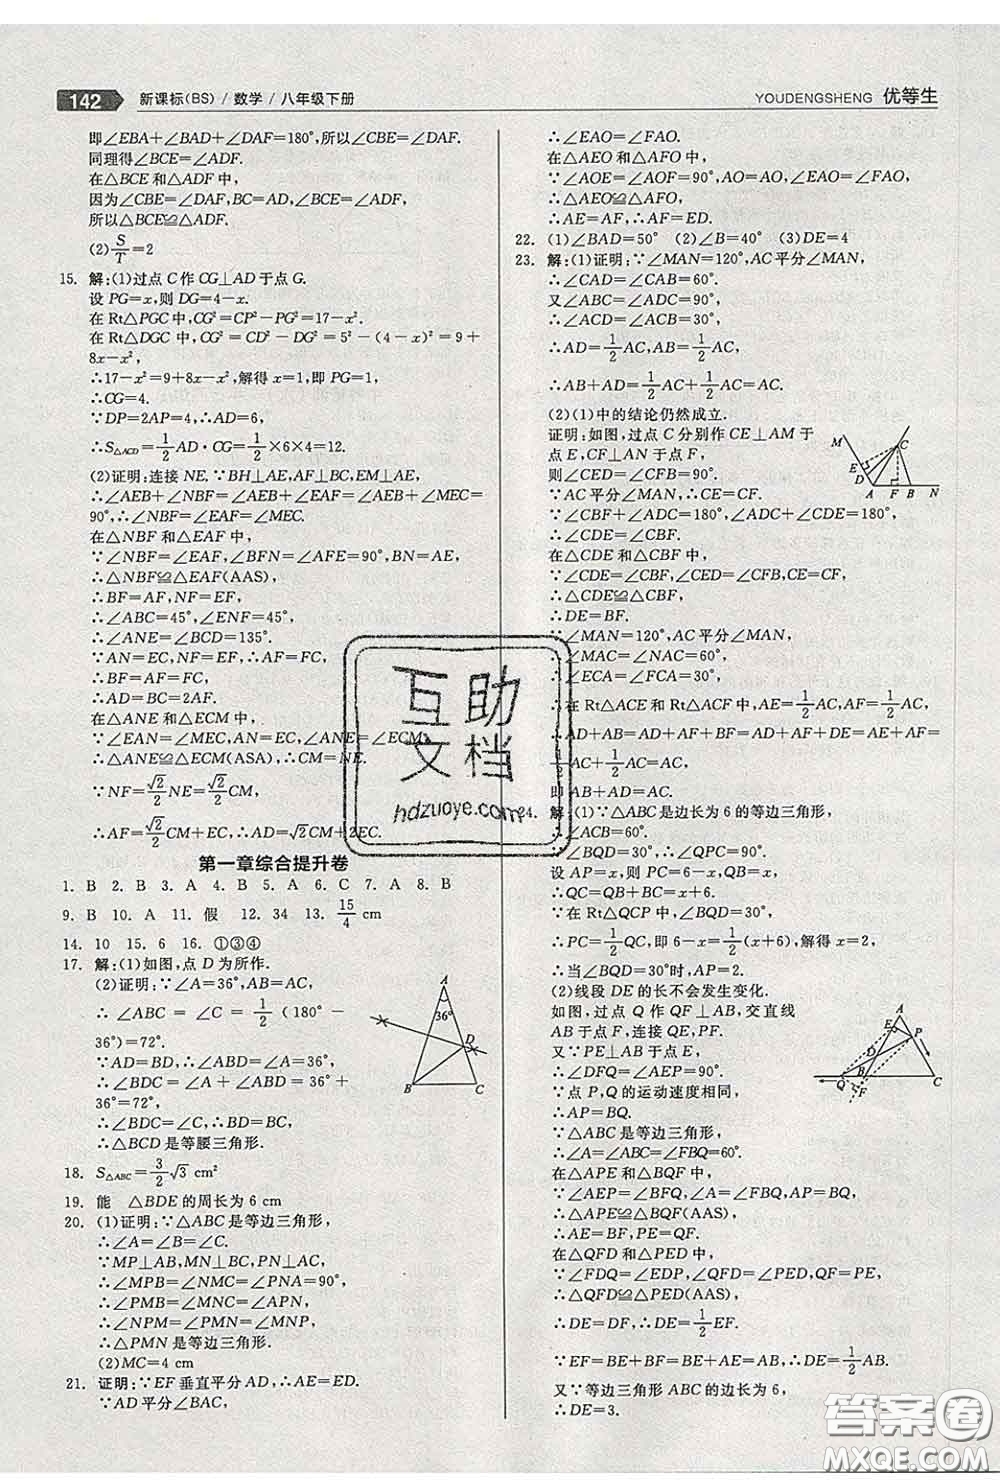 142 新课标(BS)/数学/八年级下册
YOUDENGSHENG 优等生
即∠EBA+∠BAD+∠DAF=180°,所以∠CBE=∠DAF.
同理得∠BCE=∠ADF.
在△BCE和△ADF中,
因为∠CBE=∠DAF,BC=AD,∠BCE=∠ADF,
所以△BCE≌△ADF.
(2)S/T=2
15. 解:(1)过点C作CG⊥AD于点G.
设PG=x,则DG=4-x.
在Rt△PGC中,CG²=CP²-PG²=17-x².
在Rt△DGC中,CG²=CD²-DG²=5²-(4-x)²=9+
8x-x²,
∴17-x²=9+8x-x²,解得x=1,即PG=1,
∴CG=4.
∵DP=2AP=4,∴AD=6,
∴S△ACD=1/2AD·CG=1/2×6×4=12.
(2)证明:连接NE.∵BH⊥AE,AF⊥BC,EM⊥AE,
∴∠AEB+∠NBF=∠AEB+∠EAF=∠AEB+∠MEC=
90°,∴∠NBF=∠EAF=∠MEC.
在△NBF和△EAF中,
∵∠NBF=∠EAF,∠BFN=∠AFE=90°,BN=AE,
∴△NBF≌△EAF(AAS),
∴BF=AF,NF=EF,
∴∠ABC=45°,∠ENF=45°.
∴∠ANE=∠BCD=135°.
∵AN=EC,NF=EF,∴AF=FC,
∴BF=AF=FC,
∴AD=BC=2AF.
在△ANE和△ECM中,
∵∠EAN=∠MEC,AN=EC,∠ANE=∠ECM,
∴△ANE≌△ECM(ASA),∴CM=NE.
∵NF=√2/2NE=√2/2CM,
∴AF=√2/2CM+EC,∴AD=√2CM+2EC.
第一章综合提升卷
1. B 2. B 3. A 4. B 5. A 6. C 7. A 8. B
9. B 10. A 11. 假 12. 34 13. 15/4 cm
14. 10 15. 6 16. ①③④
17. 解:(1)如图,点D为所作.
(2)证明:∵∠A=36°,AB=AC,
∴∠ABC=∠C=1/2(180°-
36°)=72°.
∵AD=BD,∴∠ABD=∠A=36°,
∴∠BDC=∠A+∠ABD=36°+
36°=72°,
∴∠BDC=∠C,∴BD=BC,
∴△BCD是等腰三角形.
A 36° D B C
18. S△ABC=3/2√3 cm²
19. 能 △BDE的周长为6 cm
20. (1)证明:∵△ABC是等边三角形,
∴∠A=∠B=∠C.
∵MP⊥AB,MN⊥BC,PN⊥AC,
∴∠MPB=∠NMC=∠PNA=90°,
∴∠PMB=∠MNC=∠APN,
∴∠NPM=∠PMN=∠MNP,
∴△PMN是等边三角形.
(2)MC=4 cm
21. 证明:∵EF垂直平分AD,∴AE=ED.
∵AD平分∠BAC,
∴∠EAO=∠FAO.
在△AEO和△AFO中,
∵∠AOE=∠AOF=90°,AO=AO,∠EAO=∠FAO,
∴△AEO≌△AFO,
∴AE=AF,∴AF=ED.
22. (1)∠BAD=50° (2)∠B=40° (3)DE=4
23. 解:(1)证明:∵∠MAN=120°,AC平分∠MAN,
∴∠CAD=∠CAB=60°.
又∠ABC=∠ADC=90°,
∴∠ACD=∠ACB=30°,
∴AD=1/2AC,AB=1/2AC,
∴AB+AD=1/2AC+1/2AC=AC.
(2)(1)中的结论仍然成立.
证明:如图,过点C分别作CE⊥AM于
点E,CF⊥AN于点F,
则∠CED=∠CFB=90°.
∵AC平分∠MAN,∴CE=CF.
∵∠CBF+∠ADC=180°,∠ADC+∠CDE=180°,
∴∠CDE=∠CBF.
在△CDE和△CBF中,
∵∠CDE=∠CBF,∠CED=∠CFB,CE=CF,
∴△CDE≌△CBF,
∴DE=BF.
∵∠MAN=120°,AC平分∠MAN,
∴∠MAC=∠NAC=60°,
∴∠ECA=∠FCA=30°.
在Rt△ACE和Rt△ACF中,AE=1/2AC,AF=1/2AC,
∴AD+AB=AD+AF+BF=AD+AF+DE=AE+AF=
1/2AC+1/2AC=AC,
即AB+AD=AC.
M C E D A F B N
24. 解:(1)∵△ABC是边长为6的等边三角形,
∴∠ACB=60°.
∵∠BQD=30°,∴∠QPC=90°.
设AP=x,则PC=6-x,QB=x,
∴QC=QB+BC=x+6.
∵在Rt△QCP中,∠BQD=30°,
∴PC=1/2QC,即6-x=1/2(x+6),解得x=2,
∴当∠BQD=30°时,AP=2.
(2)线段DE的长不会发生变化.
如图,过点Q作QF⊥AB,交直线
AB于点F,连接QE,PF.
又∵PE⊥AB于点E,
∴∠DFQ=∠AEP=90°.
∵点P,Q的运动速度相同,
∴AP=BQ.
∵△ABC是等边三角形,
∴∠A=∠ABC=∠FBQ=60°.
在△APE和△BQF中,
∵∠AEP=∠BFQ,∠A=∠FBQ,AP=BQ,
∴△APE≌△BQF(AAS),
∴AE=BF,PE=QF.
在△QFD和△PED中,
∵∠FDQ=∠EDP,∠QFD=∠PED,QF=PE,
∴△QFD≌△PED(AAS),
∴DE=DF,∴DE=1/2EF.
∵EF=BE+BF=BE+AE=AB,∴DE=1/2AB.
又∵等边三角形ABC的边长为6,
∴DE=3.
A E P D Q B F C
互助
文档
hdzuoye.com
答案圈
MXQE.COM